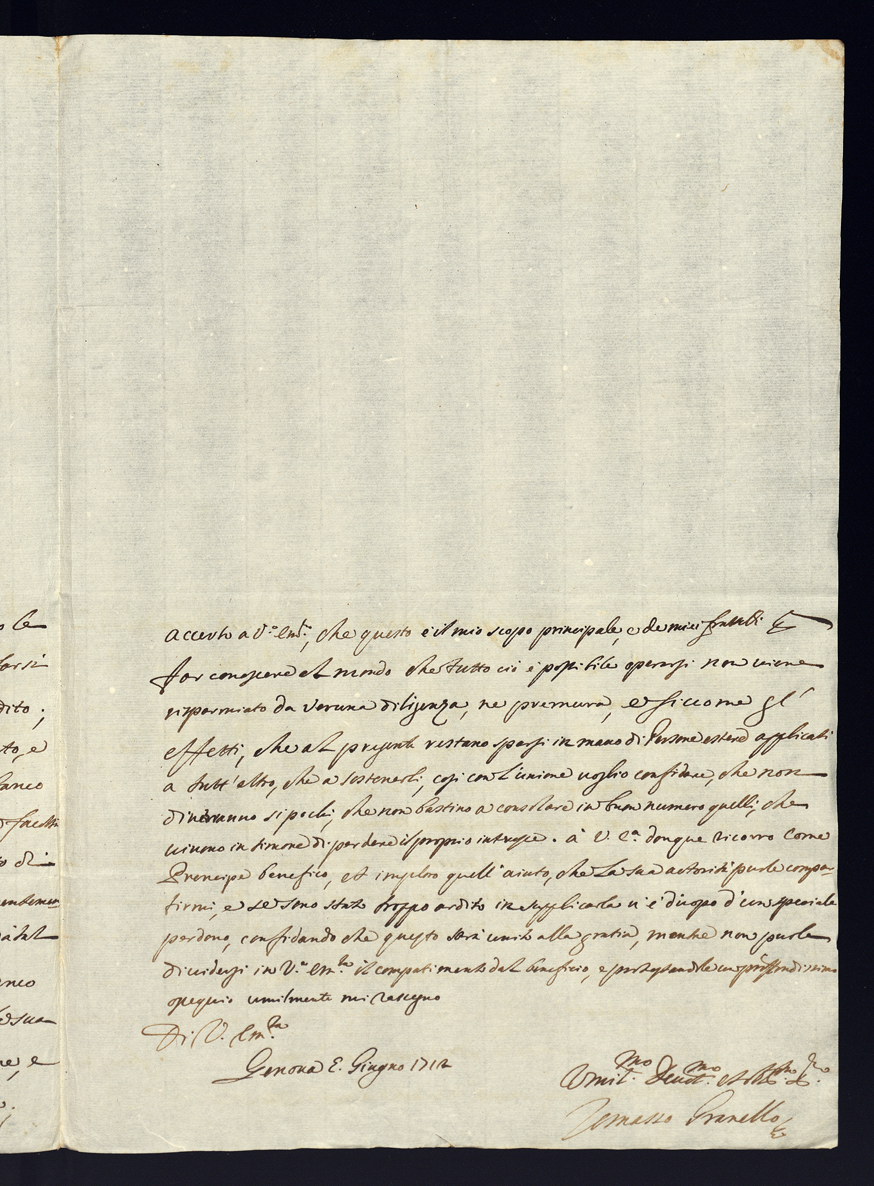 o le
dito;
to, e
anco
o di
anco
e sua
ne, e
accerto a V.ª Em.ª, che questo è il mio scopo principale, e de miei fratelli
far conoscere al mondo che tutto ciò è possibile operarsi non viene
risparmiato da veruna diligenza, ne premura, e siccome gl'
effetti, che al presente restano sparsi in mano di Persone estere applicati
a tutt'altro, che a sostenerli, così con l'unione voglio confidare, che non
diveranno si pochi, che non bastino a consolare in buon numero quelli, che
vivono in timore di perdere il proprio interesse. à V. E.ª donque ricorro come
Prencipe benefico, et imploro quell'aiuto, che la sua autorità puole compar-
tirmi, e se sono stato troppo ardito in supplicarla vi è d'uopo d'un speciale
perdono, confidando che questo sarà unito alla gratia, mentre non puole
dividersi in V.ª Em.za il compatimento dal beneficio, e protestandole un profondissimo
ossequio umilmente mi rassegno
Di V. Em.za
Genova Giugno 1712
Umil.mo Devot.mo
Tomasso Granello